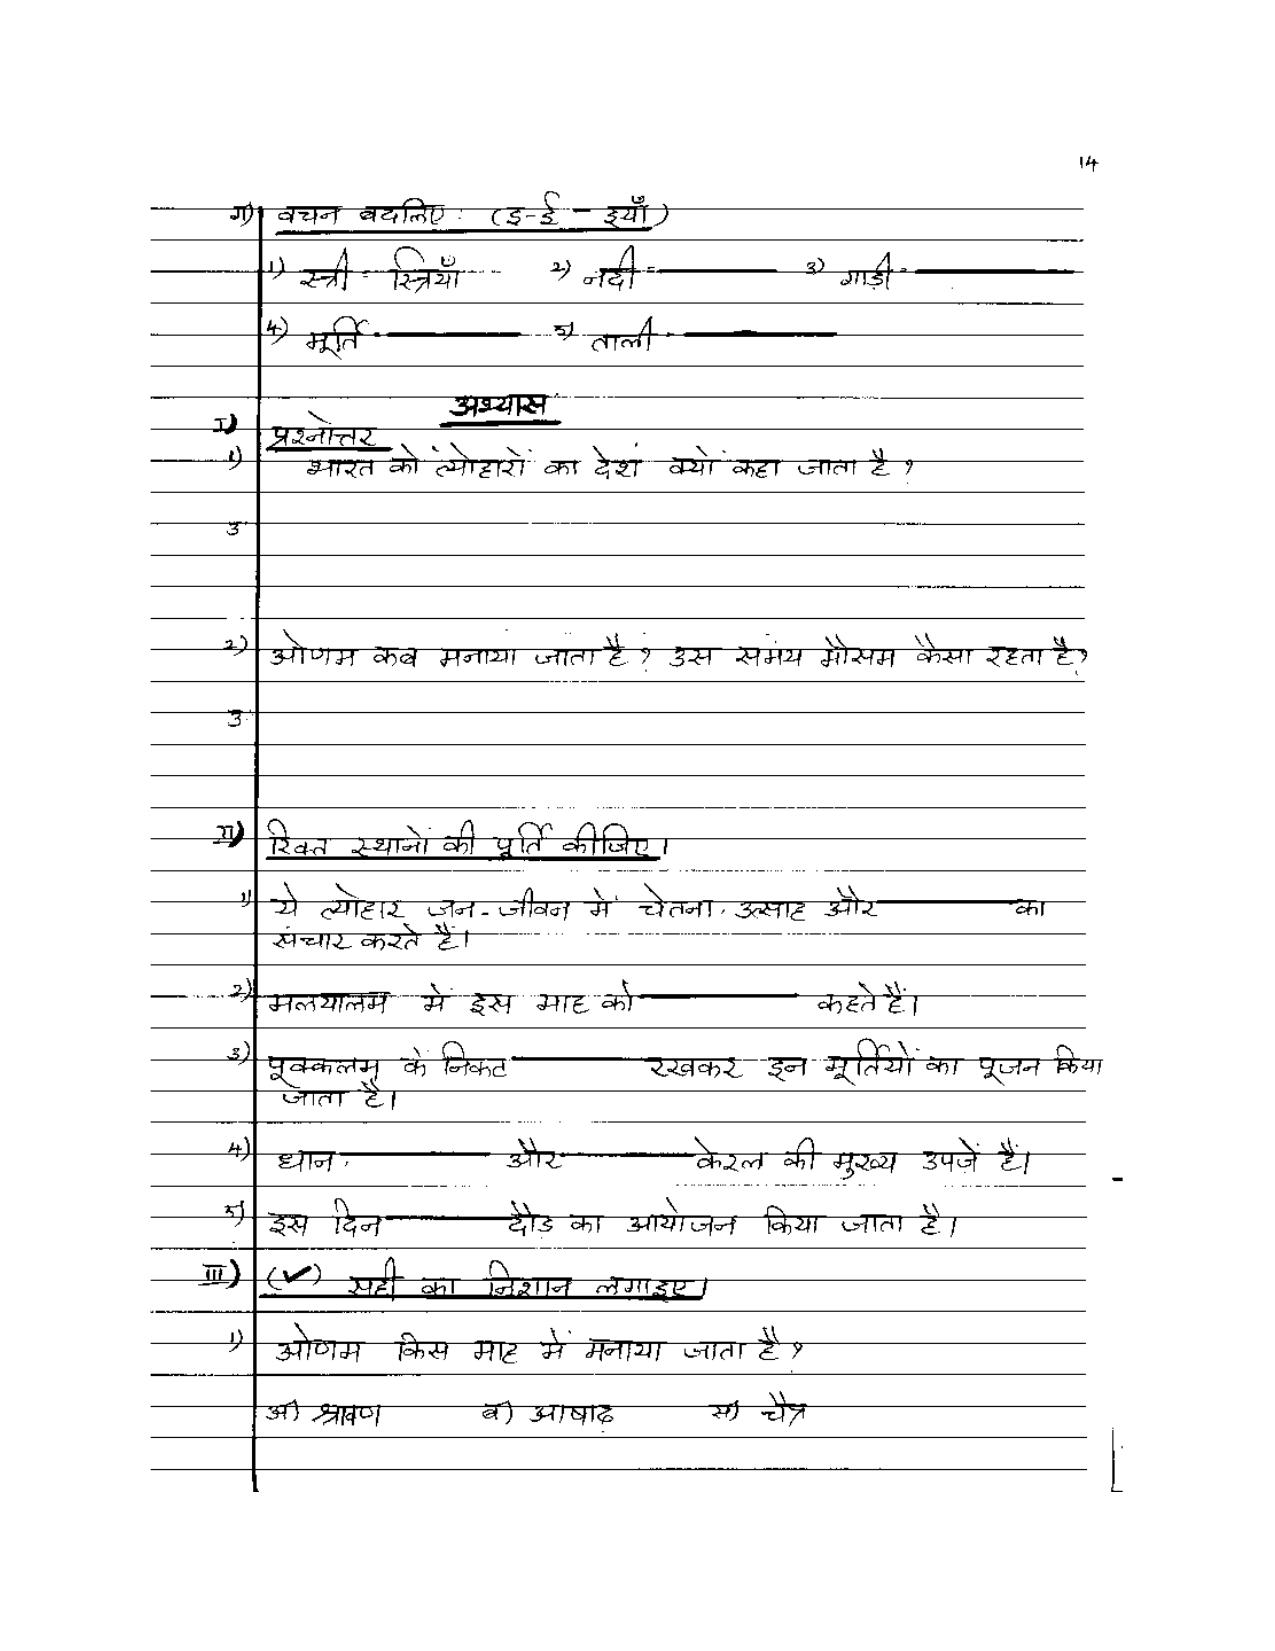 14
ग) वचन बदलिए : (इ-ई - इयाँ)
1) स्त्री - स्त्रियाँ 2) नदी - 3) गाड़ी -
4) मूर्ति - 5) ताली -
अभ्यास
I) प्रश्नोत्तर
1) भारत को त्योहारों का देश क्यों कहा जाता है ?
उ
2) ओणम कब मनाया जाता है ? उस समय मौसम कैसा रहता है ?
उ
II) रिक्त स्थानों की पूर्ति कीजिए।
1) ये त्योहार जन-जीवन में चेतना, उत्साह और का
संचार करते हैं।
2) मलयालम में इस माह को कहते हैं।
3) पूक्कलम् के निकट रखकर इन मूर्तियों का पूजन किया
जाता है।
4) धान, और केरल की मुख्य उपजें हैं।
5) इस दिन दौड का आयोजन किया जाता है।
III) (✓) सही का निशान लगाइए।
1) ओणम किस माह में मनाया जाता है ?
अ) श्रावण ब) आषाढ़ स) चैत्र